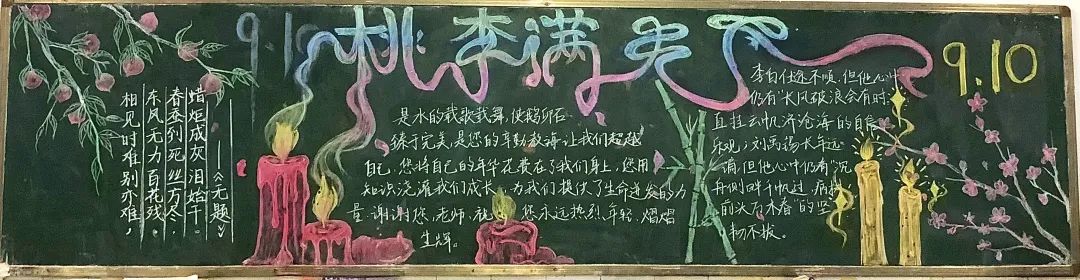 9.10
桃李满天下
9.10
《无题》
相见时难别亦难，
东风无力百花残。
春蚕到死丝方尽，
蜡炬成灰泪始干。
是水的载歌载舞，使鹅卵石
臻于完美，是您的辛勤教诲让我们超越
自己，您将自己的年华花费在了我们身上，您用
知识浇灌我们成长，为我们提供了生命迸发的力
量，谢谢您，老师，祝您永远热烈，年轻，熠熠
生辉。
李白仕途不顺，但他心中
仍有"长风破浪会有时，
直挂云帆济沧海的自信
乐观，刘禹锡长年远
谪，但他心中仍有"沉
舟侧畔千帆过，病树
前头万木春"的坚
韧不拔。